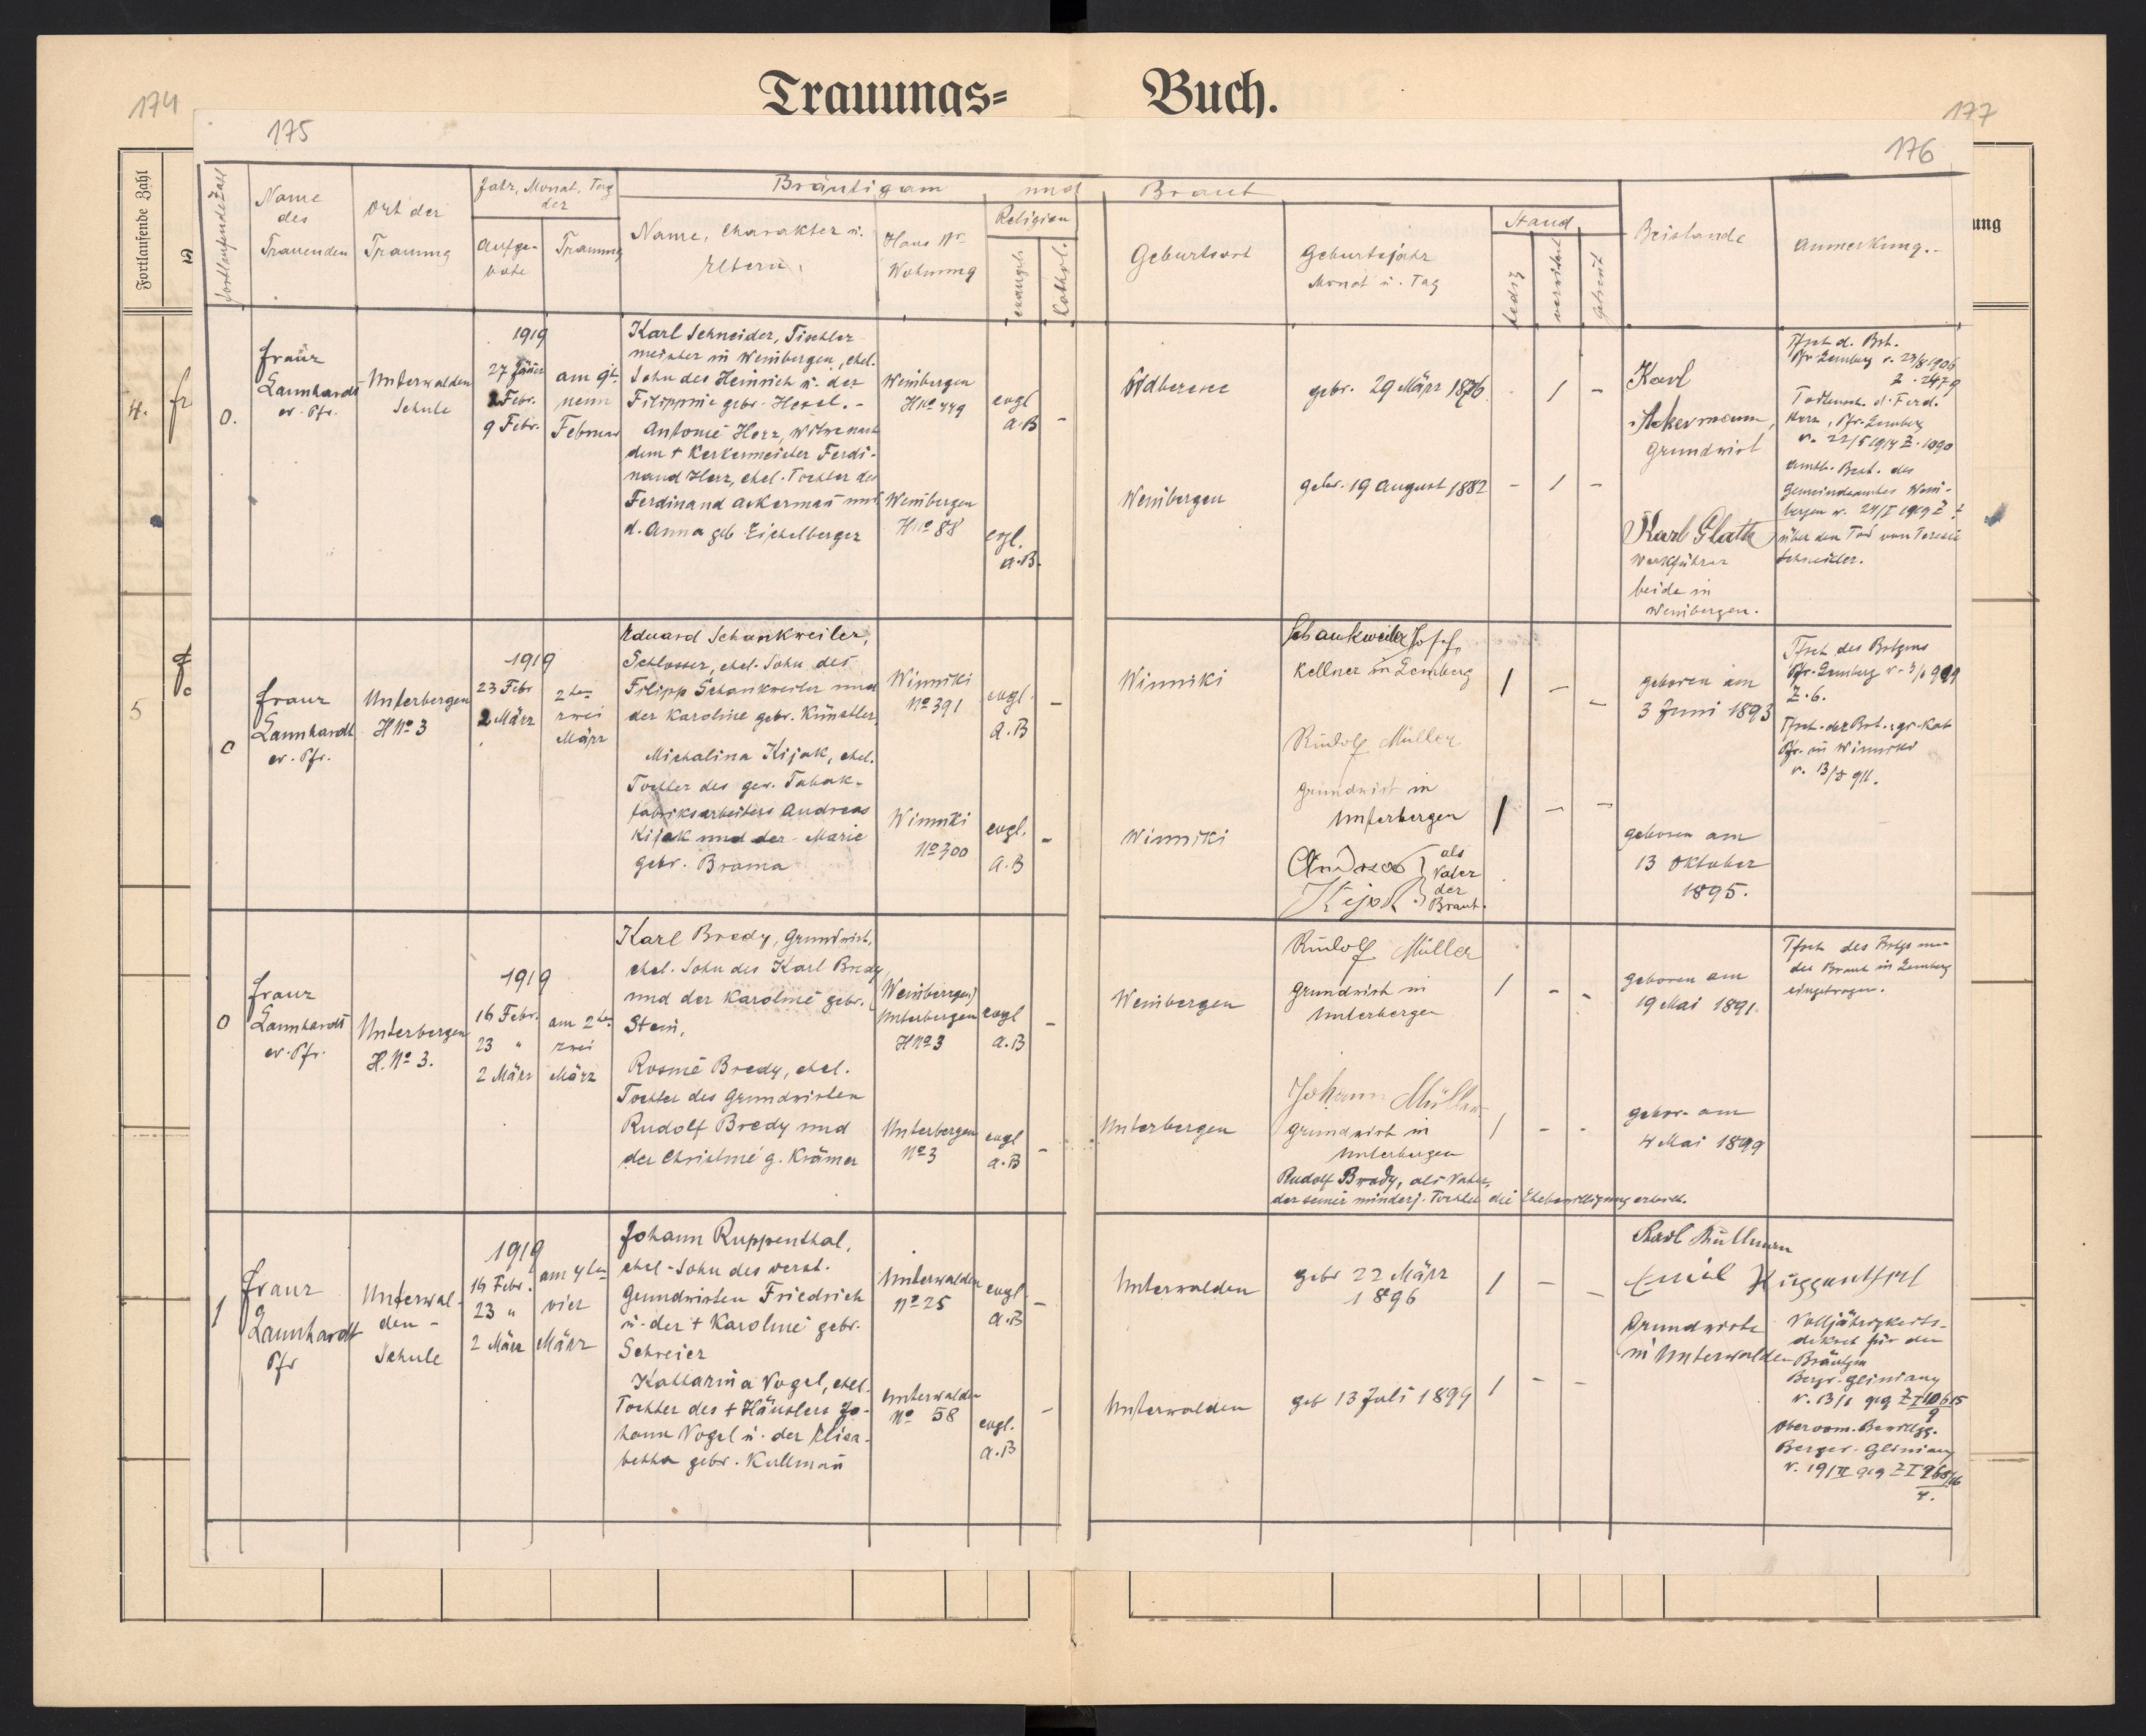 Trauungs= Buch.
174
177
175
176
Fortlaufende Zahl
ung
fortlaufende Zahl
Name
des
Trauenden
Ort der
Trauung
Jahr, Monat, Tag
der
Aufge-
bote
Trauung
Bräutigam und Braut
Name, Charakter u.
Eltern.
Haus Nr.
Wohnung
Religion
evangel.
kathol.
Geburtsort
Geburtsjahr
Monat u. Tag
Stand
ledig
verwitwet
getrennt
Beistände
Anmerkung.-
4.
fr
5
0.
Franz
Lannhardt
ev. Pfr.
Unterwalden
Schule
1919
27 Jäner
2 Febr.
9 Febr.
am 9t.
neun
Februar
Karl Schneider, Tischler
meister in Weinbergen, ehel.
Sohn des Heinrich u. der
Filippine gebr. Hexel. -
Antonie Herz, Witwe nach
dem + Kerkermeister Ferdi-
nand Herz, ehel. Tochter des
Ferdinand Ackerman und
d. Anna geb Eichelberger
Weinbergen
HNo 449
Weinbergen
HNo 88
evgl
A.B
evgl.
A.B.
-
Weinbergen
gebr. 29 März 1876.
gebr. 19 August 1882
- 1 -
- 1 -
Karl
Ackermann,
Grundwirt
Karl Glath
Werkführer
beide in
Weinbergen.
Tfsch d. Brt.
Pfr Lemberg v. 23/8 1906
Z. 2479
Todtensch. d. Ferd.
Herz, Pfr. Lemberg
v. 22/5 1914 Z. 1090
Amtl. Best. des
Gemeindeamtes Wein-
bergen v. 24/I 1919 Z
über den Tod von Teresie
Schneider.
0
Franz
Lannhardt
ev. Pfr.
Unterbergen
HNo 3
1919
23 Febr
2 März
2ten
zwei
März
Eduard Schankweiler,
Schlosser, ehel. Sohn des
Filipp Schankweiler und
der Karoline gebr. Künstler.
Michalina Kijak, ehel.
Tochter des gew. Tabak-
fabriksarbeiters Andreas
Kijak und der Marie
gebr. Brama
Winniki
No 391
Winniki
No 300
evgl.
A.B
evgl.
A.B
-
Winniki
Winniki
Schankweiler Josef,
Kellner in Lemberg
Rudolf Müller
Grundwirt in
Unterbergen
Andreas
Kijak
als
Vater
der
Braut.
1 - -
1 - -
geboren am
3 Juni 1893
geboren am
13 Oktober
1895.
Tfsch des Brtgms
Pfr. Lemberg
Z. 6.
Tfsch. der Brt. gr. Kat
Pfr. in Winniki
0
Franz
Lannhardt
ev. Pfr.
Unterbergen
H. No 3.
1919
16 Febr.
23 "
2 März
am 2ten
zwei
März
Karl Bredy, Grundwirt,
ehel. Sohn des Karl Bredy
und der Karoline gebr.
Stein,
Rosine Bredy, ehel.
Tochter des Grundwirten
Rudolf Bredy und
der Christine g. Krämer
(Weinbergen)
Unterbergen
HNo 3
Unterbergen
No 3
evgl
A.B
evgl
A.B
-
Weinbergen
Unterbergen
Rudolf Müller
Grundwirt in
Unterbergen
Johann Müller
Grundwirt in
Unterbergen
Rudolf Bredy, als Vater,
der seiner minderj. Tochter die Ehebewilligung erteilt.
1 - -
1 - -
geboren am
19 Mai 1891.
gebor. am
4 Mai 1899
Tfsch des Brtgs und
der Braut in Lemberg
eingetragen.
1
Franz
Lannhardt
Pfr
Unterwal-
den -
Schule
1919
16 Febr.
23 "
2 März
am 4ten
vier
März
Johann Ruppenthal,
ehel. Sohn des verst.
Grundwirten Friedrich
u. der + Karoline gebr.
Schreier
Katharina Vogel, ehel.
Tochter des + Häuslers Jo-
hann Vogel u. der Elisa-
betha gebr. Kullman
Unterwalden
No 25
Unterwalden
No 58
evgl
A.B
evgl.
A.B
-
Unterwalden
Unterwalden
gebr 22 März
1896
geb 13 Juli 1899
1 - -
1 - -
Karl Kullmann
Emil
Grundwirte
in Unterwalden
Volljährigkeits-
dekret für den
Bräutgm